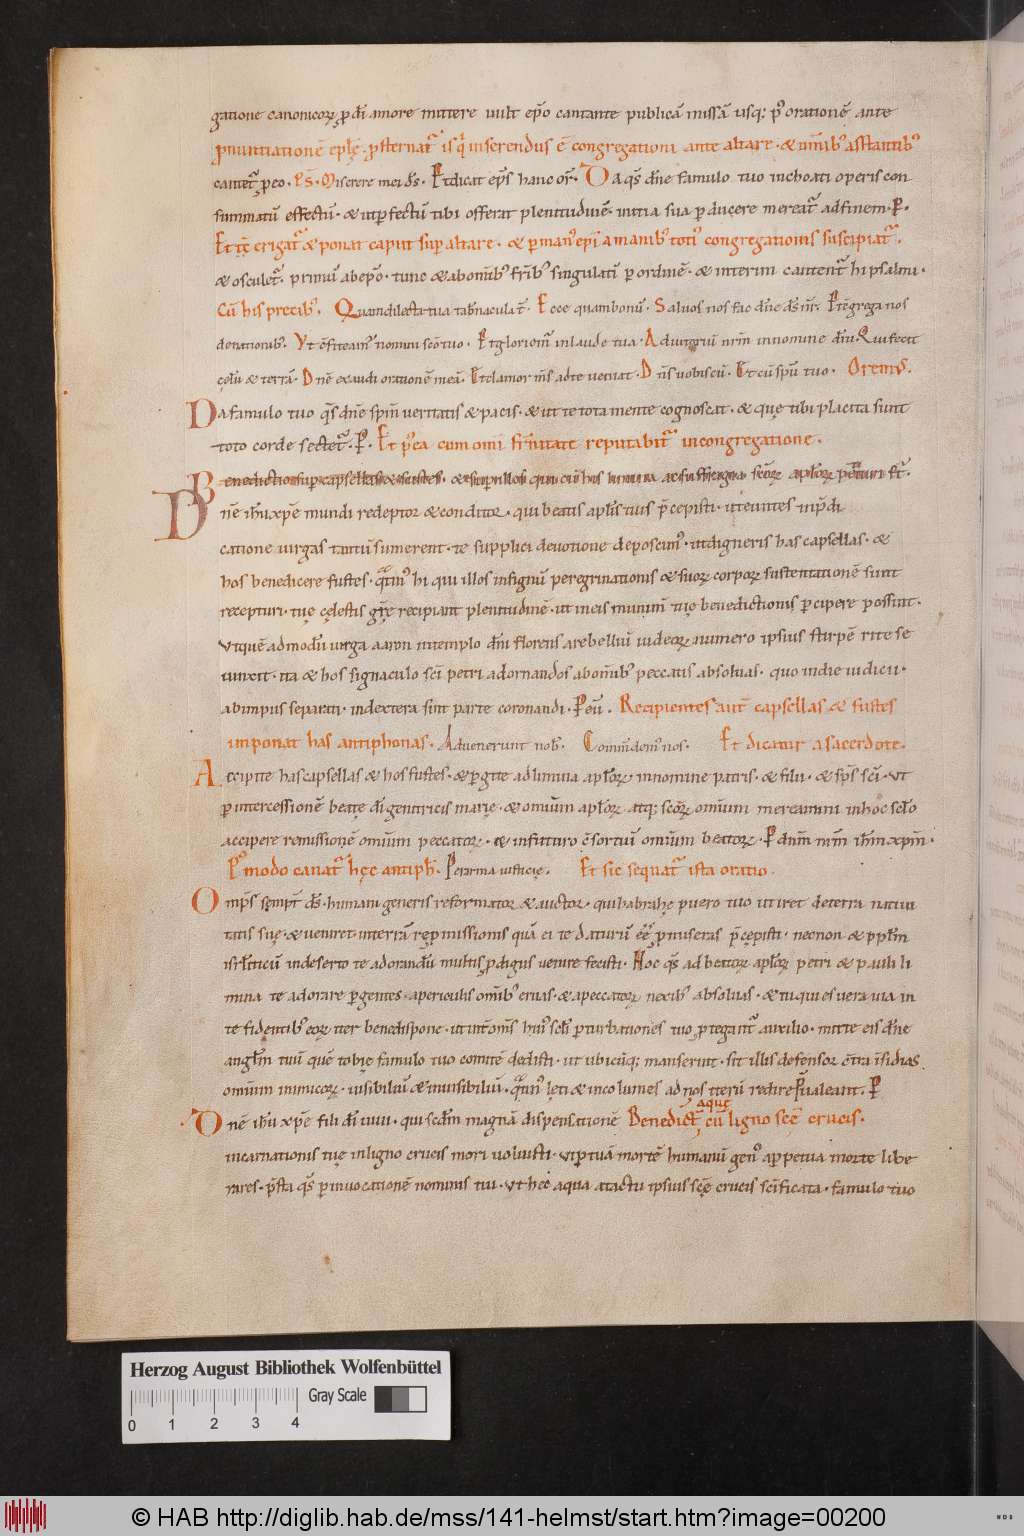 gatione canonicoꝝ ꝑ dī amore mittere uult ep̄o cantante publicā missā usq; p̄ orationē ante
ꝓnuntiationē ep̄lę. ꝓsternat᷑ is qͥ inserendus ē congregationi ante altare. & om̄ib; astantib;
cantet᷑ ꝑ eo. PS. Miserere mei d̄s. Et dicat ep̄s hanc or̄. Da qs̄ dn̄e famulo tuo inchoati operis con
summatū effectū. & ut ꝑfectū tibi offerat plenitudinē. initia sua ꝑducere mereat᷑ ad finem. P.
erigat᷑ & ponat caput suꝑ altare. & ꝑ man; ep̄i a manib; toti; congregationis suscipiat᷑.
& osculet᷑. primū ab ep̄o. tunc & ab om̄ib; fr̄ib; singulatī ꝑ ordinē. & interim cantent᷑ hi psalmi.
Cū his precib;. Quam dilecta tua tab̄nacula t̄. Ecce quam bonū. Saluos nos fac dn̄e d̄s nr̄. Et c̄grega nos
de nationib;. Ut c̄fiteam᷑ nomini sc̄o tuo. Et gloriem᷑ in laude tua. Adiutoriū nr̄m in nomine dn̄i. Qui fecit
cęlū & terrā. Dn̄e exaudi orationē meā. Et clamor m̄s ad te ueniat. Dn̄s uobiscū. Et cū spū tuo. Orem;.
Da famulo tuo qs̄ dn̄e spm̄ ueritatis & pacis. & ut te tota mente cognoscat. & quę tibi placita sunt
toto corde sectet᷑. P. Et p̄ea cum om̄i fr̄nitate reputabit᷑ in congregatione.
Benedictio sup capsellas & fustes. & super illos qui cū his limina ac suffragia sc̄oꝝ apl̄oꝝ petituri st̄.
Dn̄e ih̄u xp̄e mundi redeptor & conditor. qui beatis apl̄is tuis p̄cepisti. ut euntes in p̄di
catione uirgas tantū sumerent. te supplici deuotione deposcim;. ut digneris has capsellas. &
hos benedicere fustes. qͣtin; hi qui illos in signū peregrinationis & suoꝝ corporꝝ sustentationē sunt
recepturi. tuę cęlestis gr̄ę recipiant plenitudinē. ut in eis munim̄ tuę benedictionis ꝑcipere possint.
Ut quē admodū uirga aaron in templo dn̄i florens a rebelliū iudeoꝝ numero ipsius stirpē rite se
iunxit. ita & hos signaculo sc̄i petri adornandos ab om̄ib; peccatis absoluas. quo in die iudicii.
ab impiis separati. in dextera sint parte coronandi. P eū. Recipientes aut̄ capsellas & fustes
imponat has antiphonas. Aduenerunt nob;. Com̄dem; nos. Et dicatur a sacerdote.
Accipite has capsellas & hos fustes. & ꝑgite ad limina apl̄oꝝ. in nomine patris. & filii. & sp̄s sc̄i. ut
ꝑ intercessionē beatę dī genitricis marię. & omium apl̄oꝝ atq; sc̄oꝝ omium mereamini in hoc sc̄lo
accipere remissionē omium peccatoꝝ. & in futuro c̄sortiū omium beatoꝝ. P dn̄m nr̄m ih̄m xp̄m.
P; modo canat᷑ hęc antiph̄. P arma iusticię. Et sic sequat᷑ ista oratio.
Omp̄s sempit̄ d̄s. humani generis reformator & auctor. qui habrahę puero tuo ut iret de terra natiui
tatis suę. & ueniret in terrā rep̄missionis quā ei te daturū eē ꝓmiseras p̄cepisti. necnon & ppl̄m
isrł̄iticū in deserto te adorandū multis ꝓdigiis uenire fecisti. Hoc qs̄ ad beatoꝝ apl̄oꝝ petri & pauli li
mina te adorare ꝑgentes. a periculis om̄ib; eruas. & a peccatoꝝ nexib; absoluas. & tu qui es uera uia in
te fidentib; eoꝝ iter bene dispone. ut int̄ om̄s hui; sc̄li ꝑturbationes tuo ꝓtegant᷑ auxilio. mitte eis dn̄e
angl̄m tuū quē tobię famulo tuo comitē dedisti. ut ubicūq; manserint. sit illis defensor c̄tra īsidias
omium inimicoꝝ. uisibiliū & inuisibiliū. qͣtin; lęti & incolumes ad nos iterū redire p̄ualeant. P
aquę
Dn̄e ih̄u xp̄e fili dī uiui. qui sc̄dm magnā dispensationē Benedict̄ cū ligno sc̄ę crucis.
incarnationis tuę in ligno crucis mori uoluisti. ut ꝑ tuā mortē humanū gen; a ꝑpetua morte libe
rares. p̄sta qs̄ ꝑ inuocationē nominis tui. ut hec aqua a tactu ipsius sc̄ę crucis sc̄ificata. famulo tuo
Herzog August Bibliothek Wolfenbüttel
Gray Scale
0 1 2 3 4
© HAB http://diglib.hab.de/mss/141-helmst/start.htm?image=00200